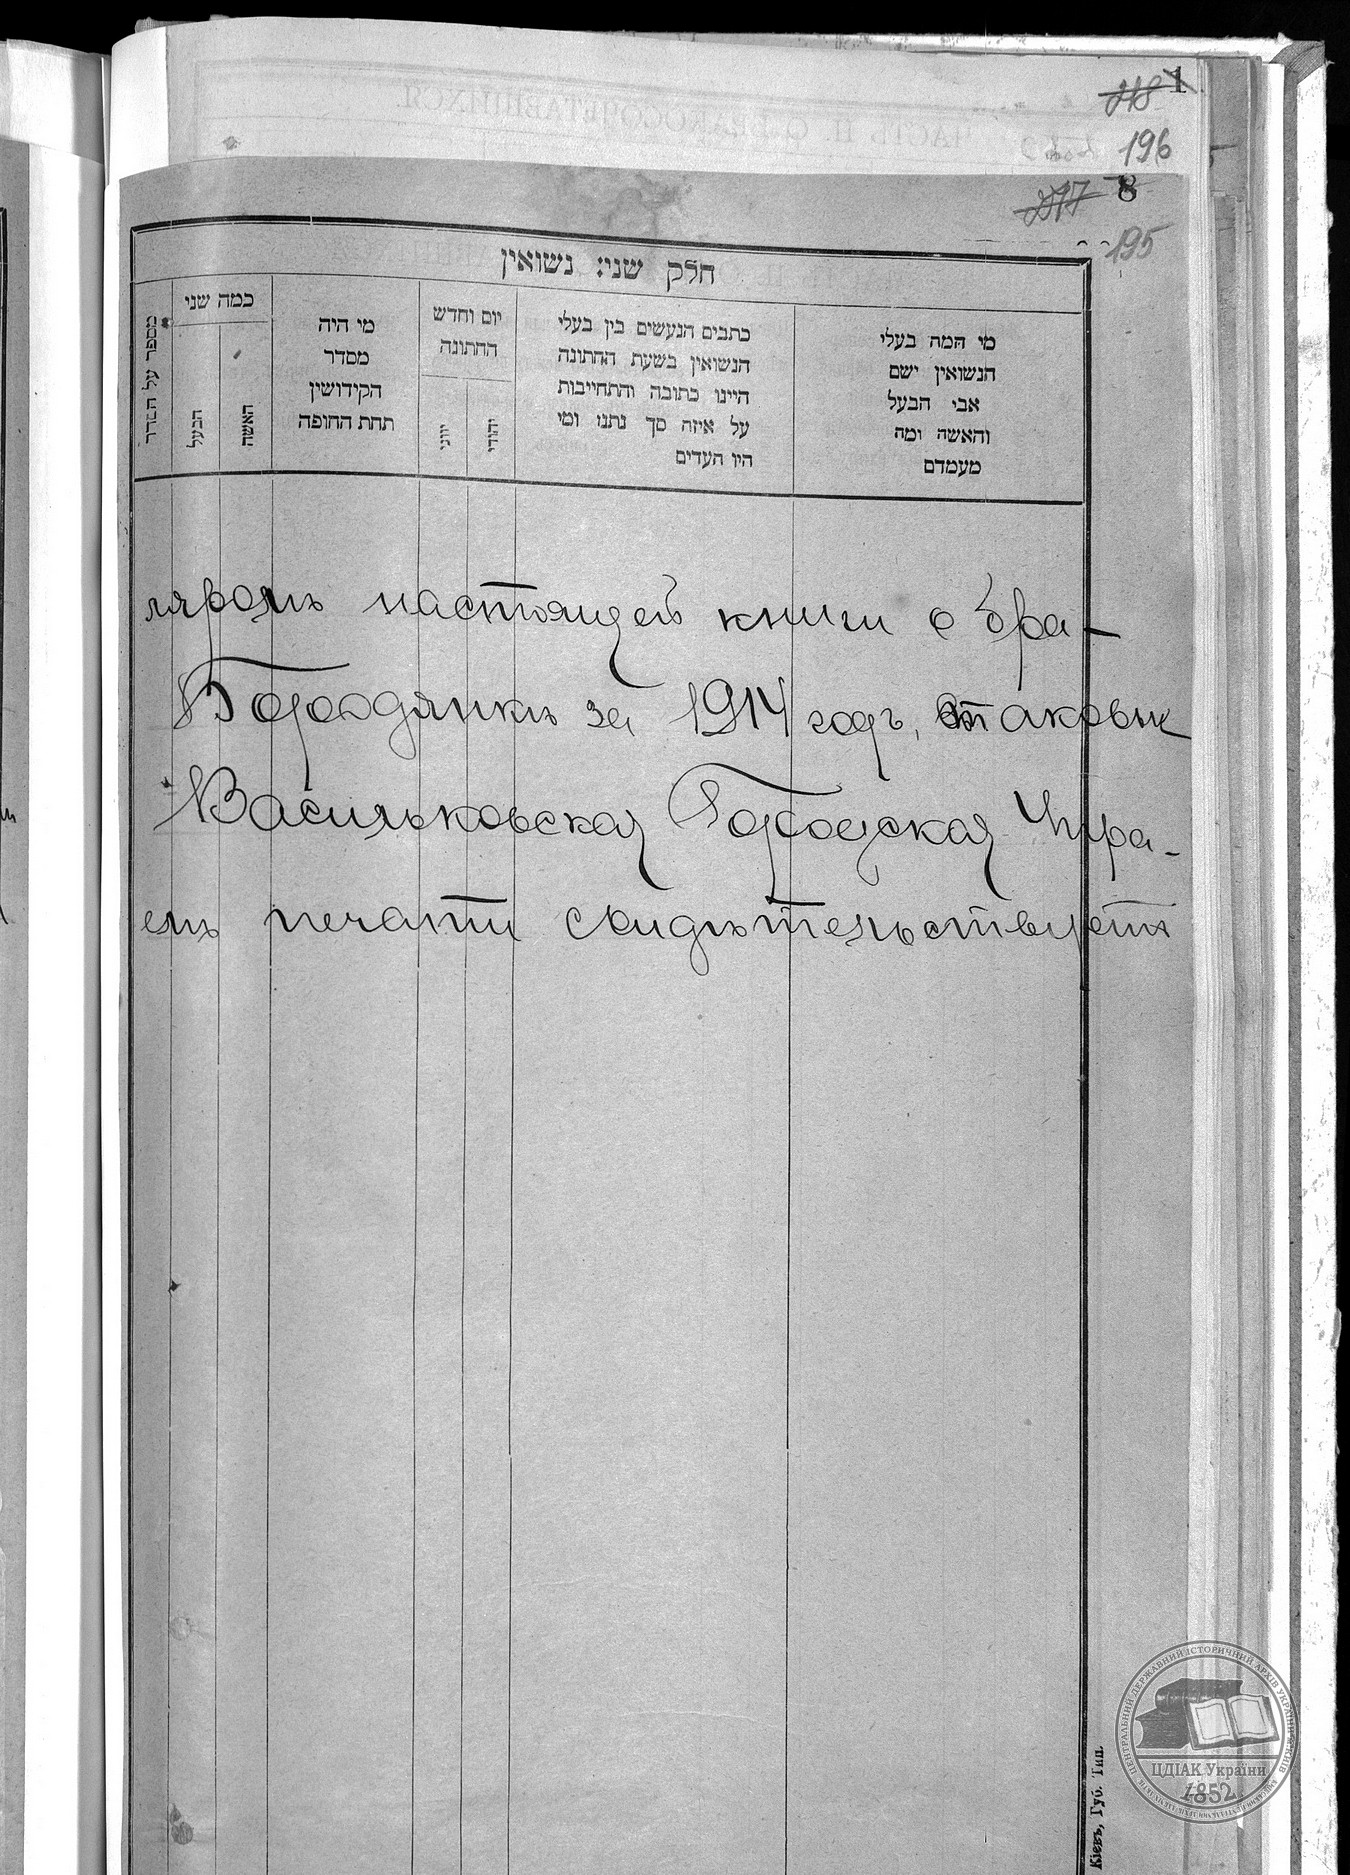 1
218
196
8
217
195
חלק שני: נשואין
מספר על הסדר
כמה שני
הבעל
האשה
מי היה
מסדר
הקידושין
תחת החופה
יום וחדש
החתונה
יוני
יהודי
כתבים הנעשים בין בעלי
הנשואין בשעת החתונה
היינו כתובה והתחייבות
על איזה סך נתנו ומי
היו העדים
מי המה בעלי
הנשואין ושם
אבי הבעל
והאשה ומה
מעמדם
ляромъ настоящей книги о бра-
Бородянкѣ за 1914 годъ, таковые
Васильковская Городская Упра-
емъ печати свидѣтельствуетъ
Кіевъ, Губ. Тип.
ЦЕНТРАЛЬНИЙ ДЕРЖАВНИЙ ІСТОРИЧНИЙ АРХІВ УКРАЇНИ, м. КИЇВ
ЦДІАК України
1852